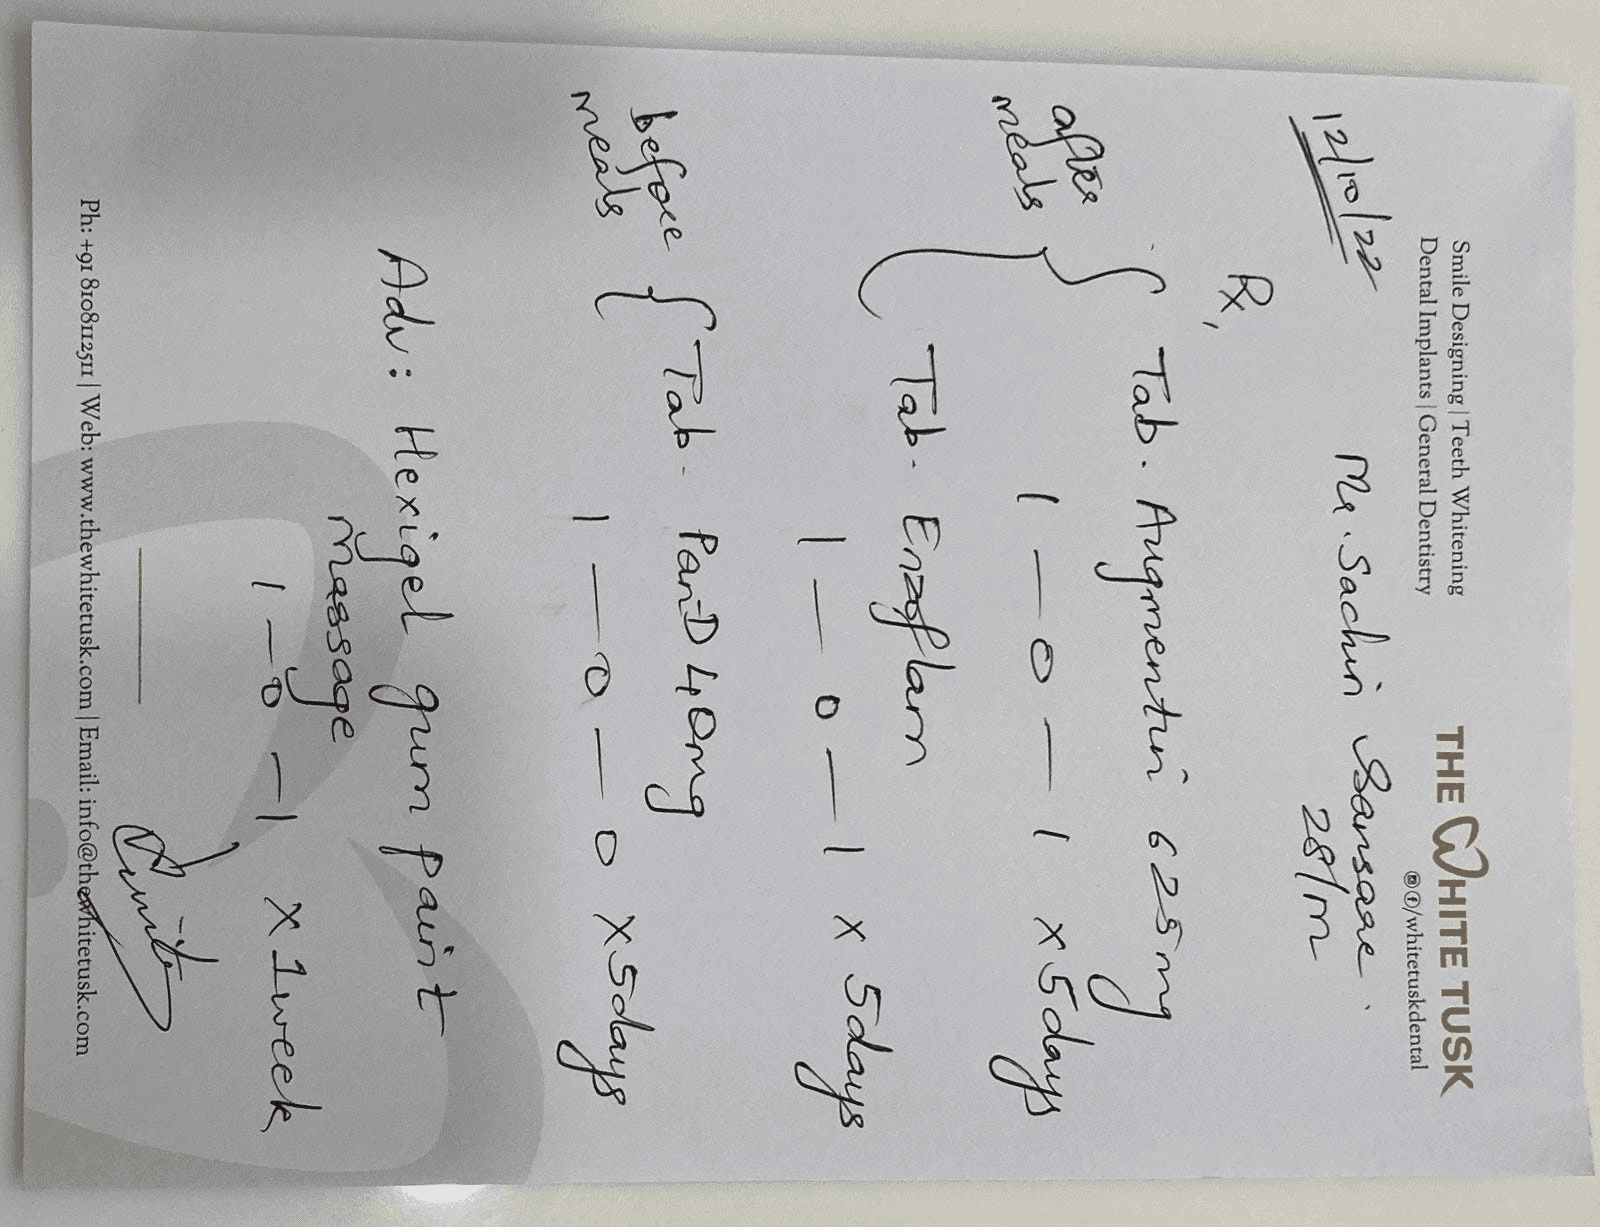 Smile Designing | Teeth Whitening
Dental Implants | General Dentistry
THE WHITE TUSK
/whitetuskdental
12/10/22
Mr. Sachin Sansare.
28/m
Rx,
after meals
Tab. Augmentin 625mg
1 — 0 — 1 x 5days
Tab. Enzoflam
1 — 0 — 1 x 5days
before meals
Tab. PanD 40mg
1 — 0 — 0 x 5days
Adv: Hexigel gum paint
massage
1 — 0 — 1 x 1week
Ph: +91 8108112511 | Web: www.thewhitetusk.com | Email: info@thewhitetusk.com